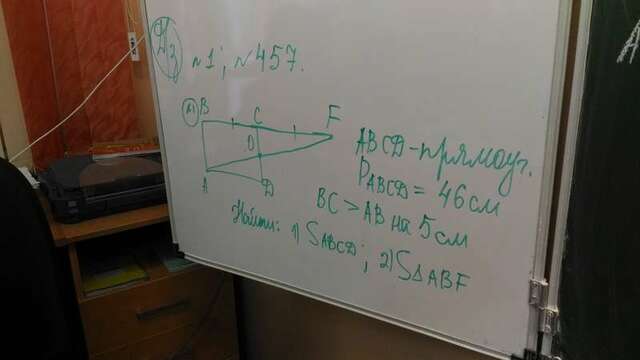 Д/з
№1; №457.
№1
B C F
O
A D
ABCD-прямоуг.
P ABCD = 46 см
BC > AB на 5 см
Найти: 1) S ABCD; 2) S△ABF